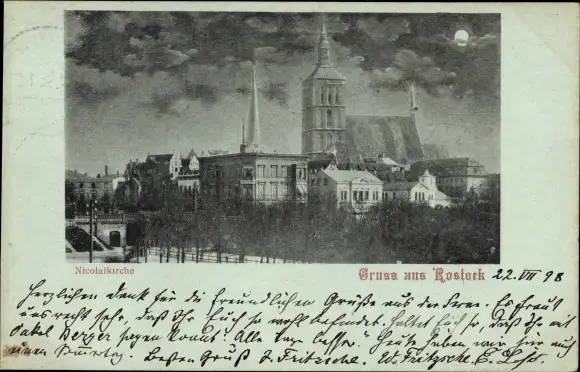 Nicolaikirche
Gruss aus Rostock 22.VII 98
Herzlichen Dank für die freundlichen Grüße aus der Ferne. Es freut
uns recht sehr, daß Ihr Euch so wohl befindet. Haltet Euch so, daß Ihr mit
Onkel sagen könnt: "Alle Tage besser." Heute haben wir hier auch
einen Besten Gruß F. Fritzsche. W. Fritzsche. E.